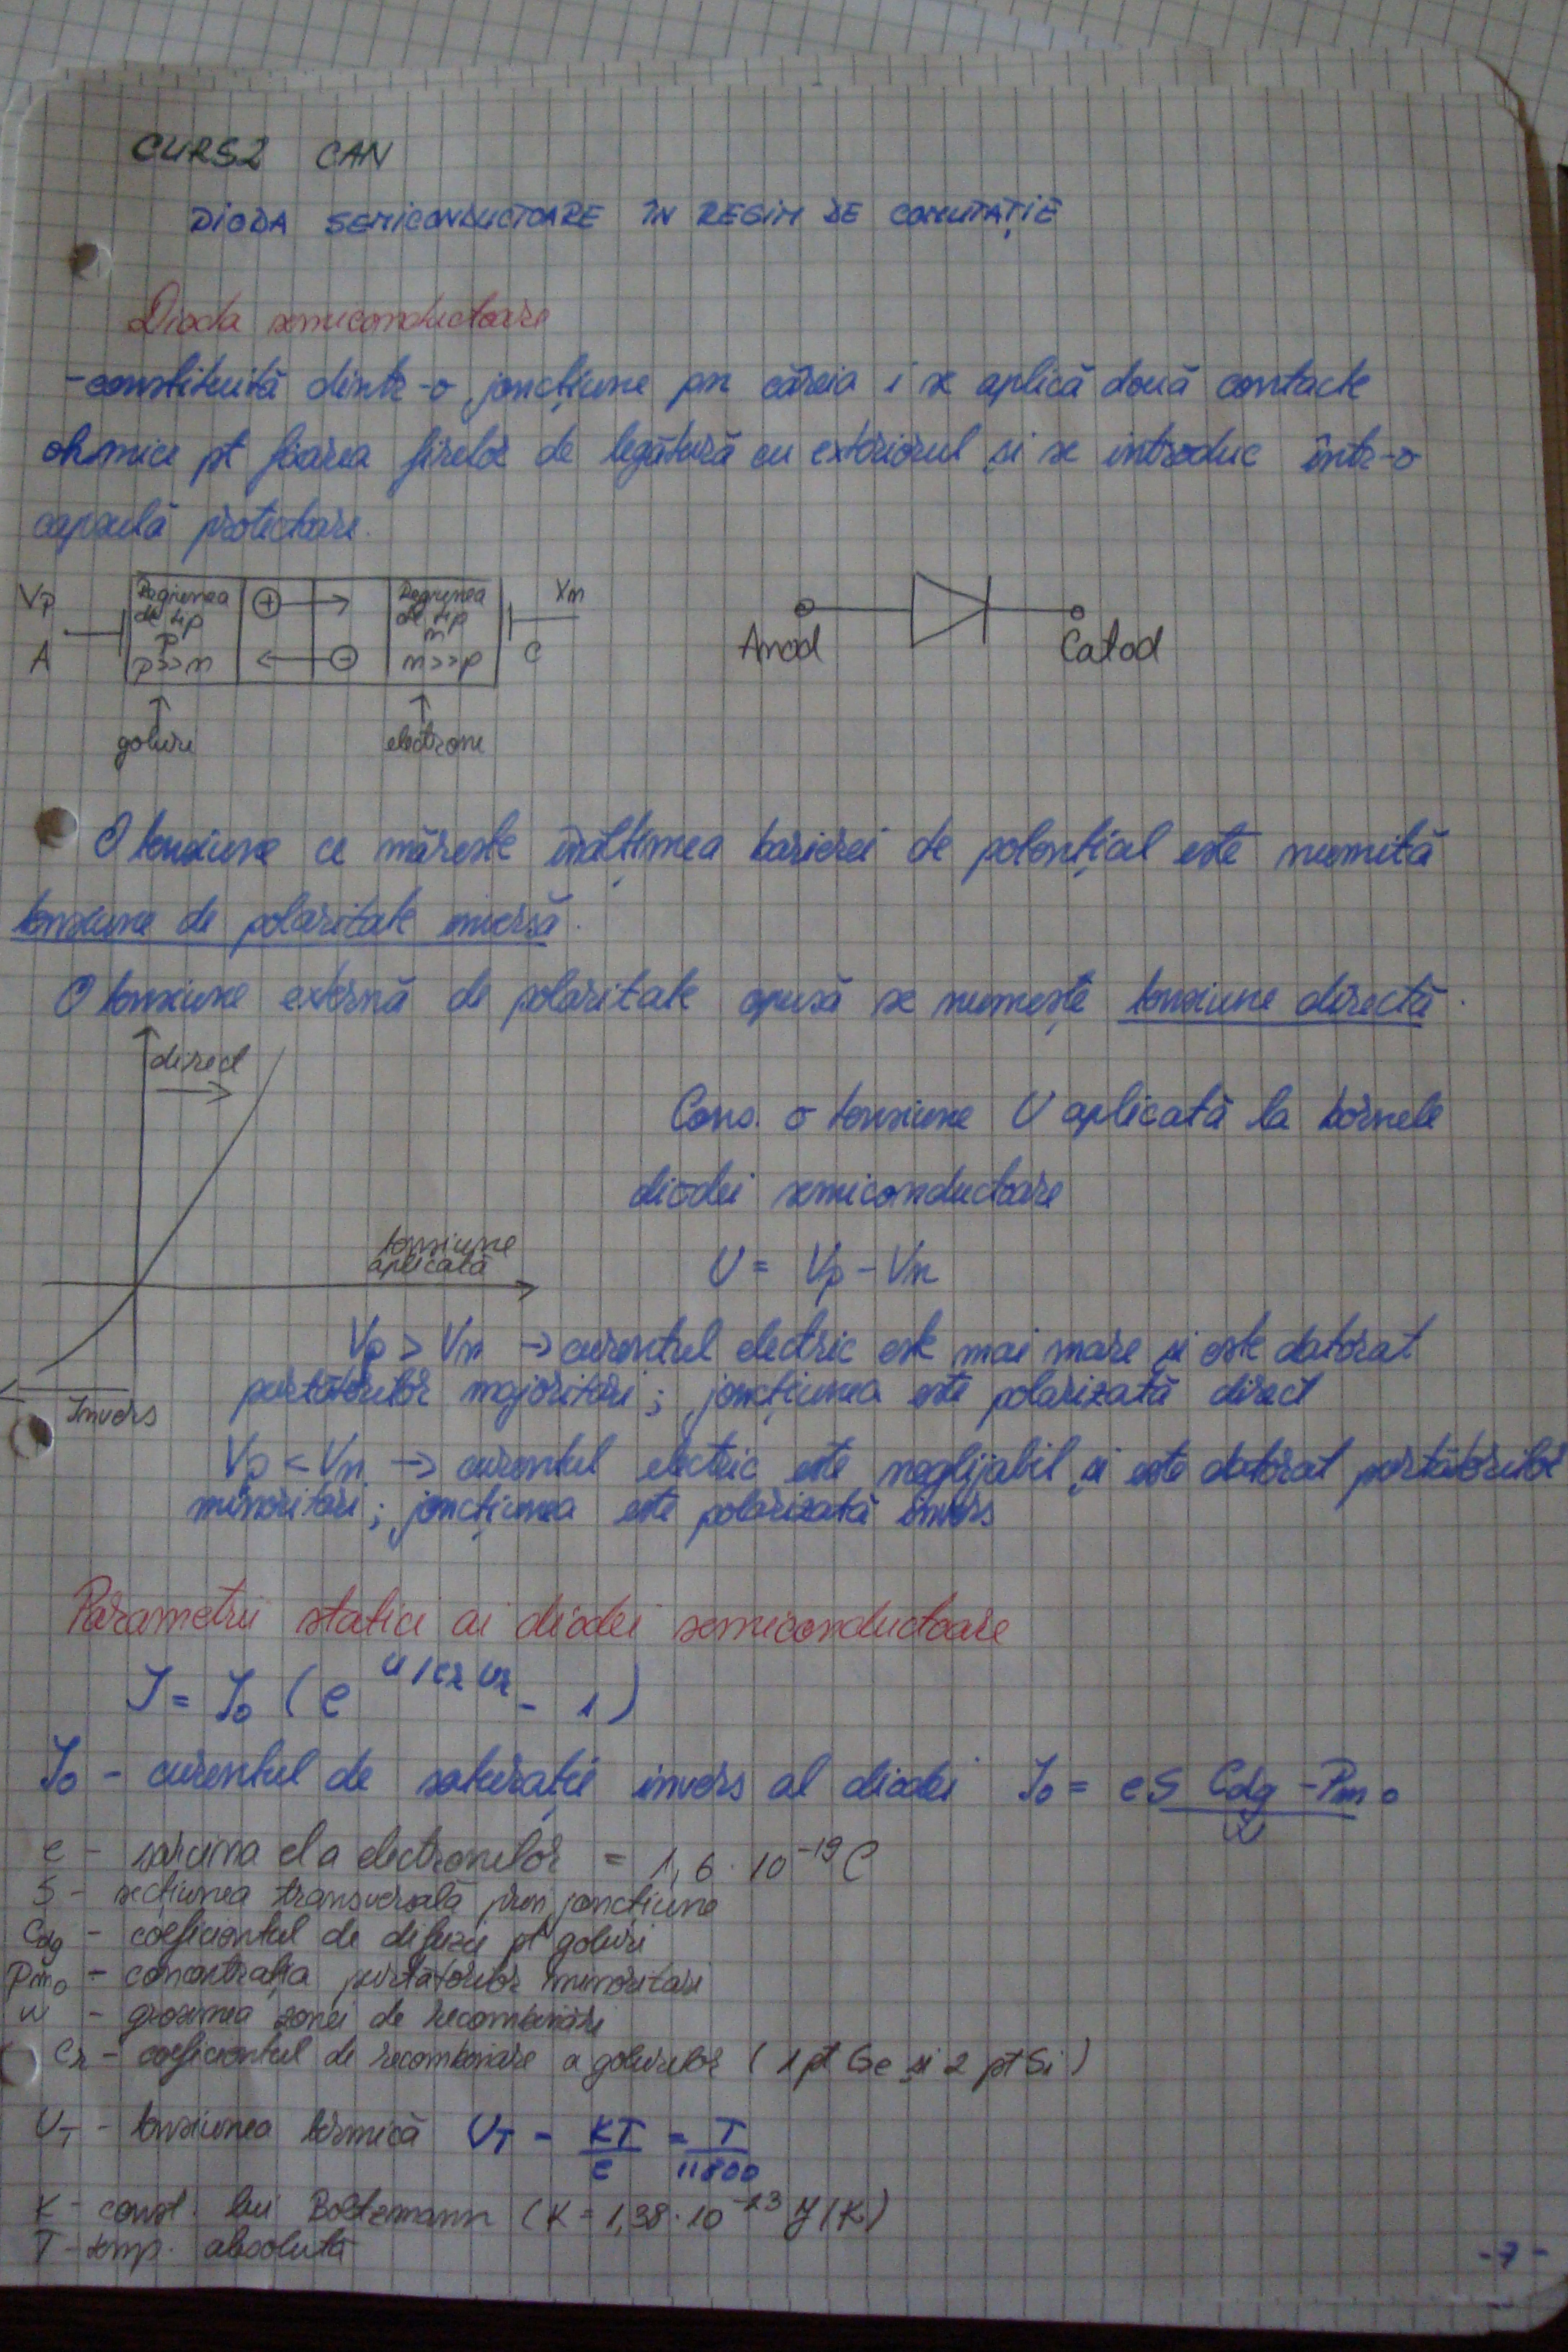 CURS2 CAN
DIODA SEMICONDUCTOARE ÎN REGIM DE COMUTAȚIE
Dioda semiconductoare
-constituită dintr-o joncțiune pn căreia i se aplică două contacte
ohmice pt fixarea firelor de legătură cu exteriorul și se introduc într-o
capsulă protectoare.
Vp
A
Regiunea de tip p
p>>n
+
-
Regiunea de tip n
n>>p
Vn
C
goluri
electroni
Anod
Catod
O tensiune ce mărește înălțimea barierei de potențial este numită
tensiune de polaritate inversă.
O tensiune externă de polaritate opusă se numește tensiune directă.
direct
Cons. o tensiune U aplicată la bornele
diodei semiconductoare
tensiune
aplicată
U = Vp - Vn
Vp > Vn → curentul electric este mai mare și este datorat
purtătorilor majoritari; joncțiunea este polarizată direct
Invers
Vp < Vn → curentul electric este neglijabil și este datorat purtătorilor
minoritari; joncțiunea este polarizată invers
Parametrii statici ai diodei semiconductoare
I = I₀ (e^(u/cr UT) - 1)
I₀ - curentul de saturație invers al diodei I₀ = eS Cdg - Pn₀ / w
e - sarcina el a electronilor = 1,6 · 10⁻¹⁹ C
S - secțiunea transversală prin joncțiune
Cdg - coeficientul de difuzie pt goluri
Pn₀ - concentrația purtătorilor minoritari
w - grosimea zonei de recombinări
Cr - coeficientul de recombinare a golurilor (1 pt Ge și 2 pt Si)
UT - tensiunea termică UT = KT/e = T/11800
K - const. lui Boltzmann (K = 1,38 · 10⁻²³ J/K)
T - temp. absolută
- 7 -